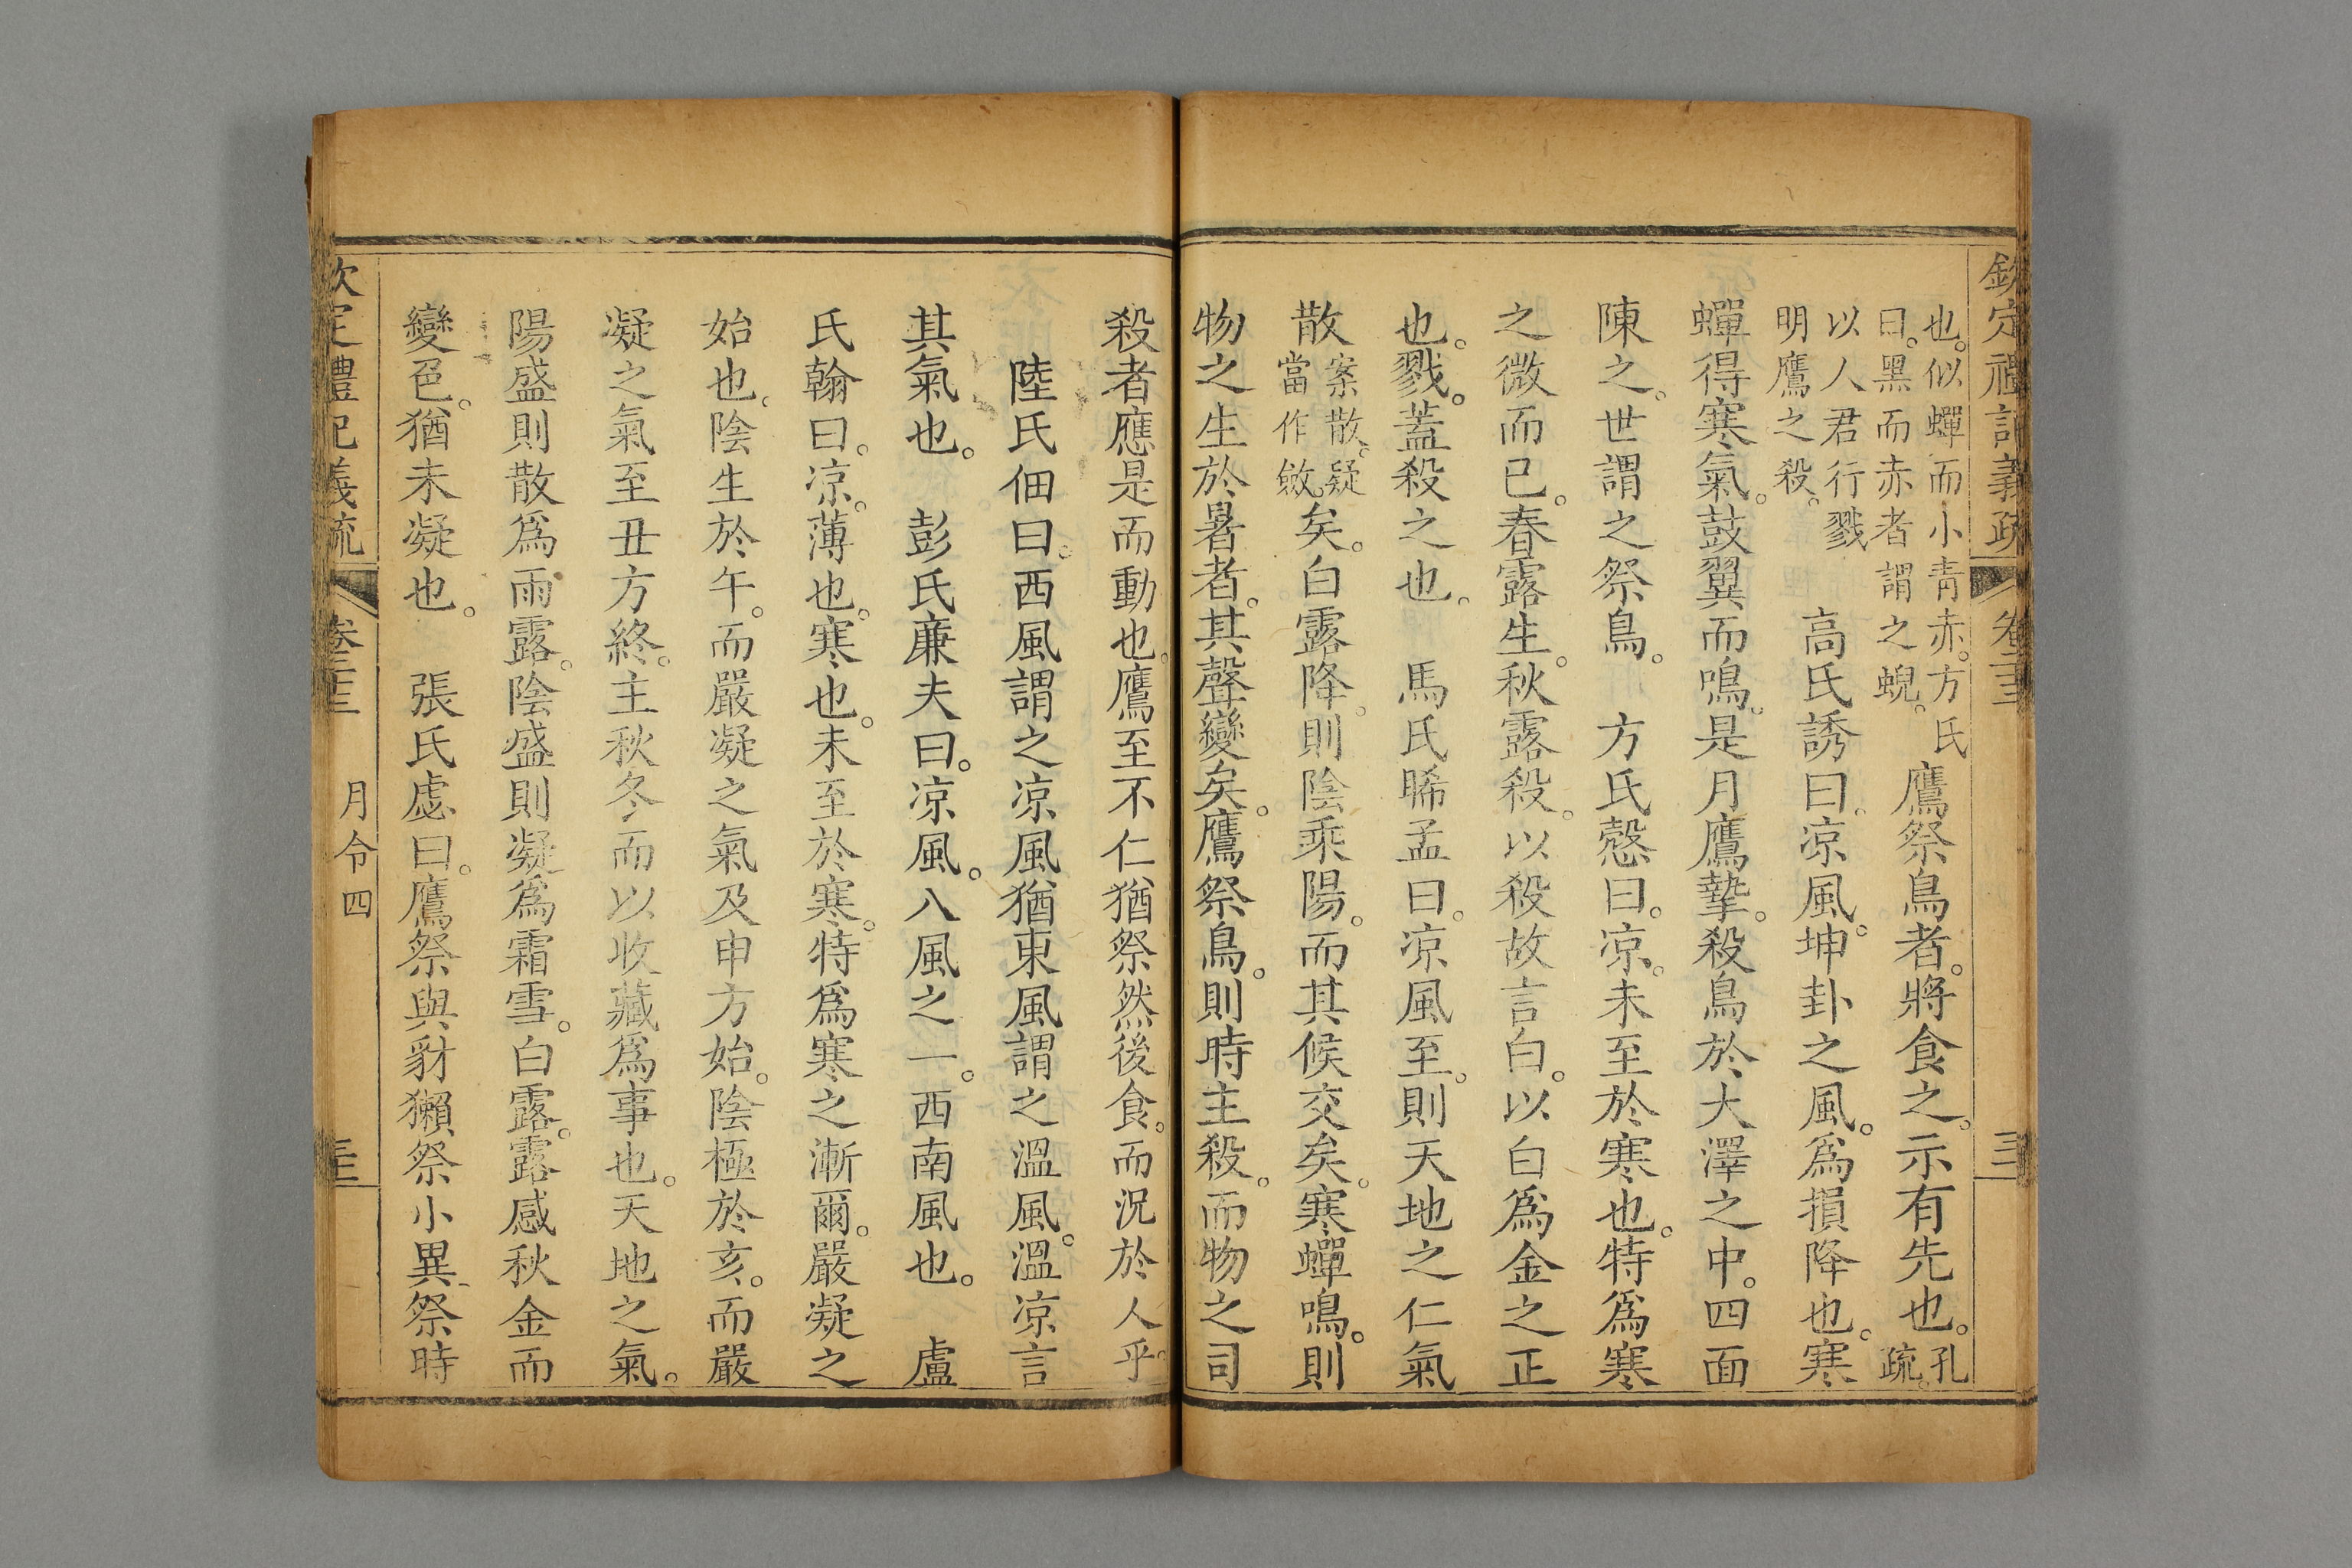 欽定禮記義疏 卷二十三 三
也。似蟬而小靑赤。方氏
曰。黑而赤者謂之蜺。
鷹祭鳥者。將食之。示有先也。
孔
疏。
以人君行戮
明鷹之殺。
高氏誘曰。凉風。坤卦之風。爲損降也。寒
蟬得寒氣。鼓翼而鳴。是月鷹摯。殺鳥於大澤之中。四面
陳之。世謂之祭鳥。 方氏慤曰。凉。未至於寒也。特爲寒
之微而已。春露生。秋露殺。以殺故言白。以白爲金之正
也。戮。蓋殺之也。 馬氏晞孟曰。凉風至。則天地之仁氣
散
案散。疑
當作斂。
矣。白露降。則陰乘陽。而其候交矣。寒蟬鳴。則
物之生於暑者。其聲變矣。鷹祭鳥。則時主殺。而物之司
殺者應是而動也。鷹至不仁猶祭然後食。而況於人乎。
陸氏佃曰。西風謂之凉風猶東風謂之溫風。溫凉言
其氣也。 彭氏廉夫曰。凉風。八風之一。西南風也。 盧
氏翰曰。凉。薄也。寒也。未至於寒。特爲寒之漸爾。嚴凝之
始也。陰生於午。而嚴凝之氣及申方始。陰極於亥。而嚴
凝之氣至丑方終。主秋冬而以收藏爲事也。天地之氣。
陽盛則散爲雨露。陰盛則凝爲霜雪。白露。露感秋金而
變色。猶未凝也。 張氏慮曰。鷹祭與豺獺祭小異。祭時
欽定禮記義疏 卷二十三 月令四 三